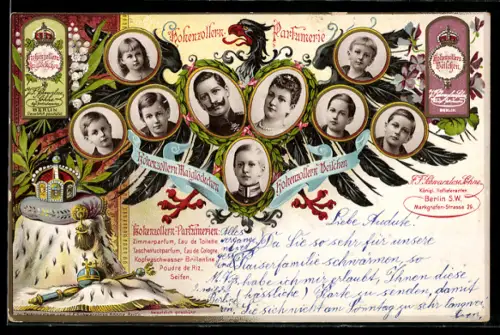 Hohenzollern Parfümerie
Hohenzollern
Maiglöckchen
BERLIN
Hohenzollern
Veilchen
BERLIN
Hohenzollern Maiglöckchen
Hohenzollern Veilchen
Königl. Hoflieferanten
Berlin S.W.
Markgrafen-Strasse 26
Hohenzollern-Parfümerien:
Zimmerparfum, Eau de Toilette
Taschentuchparfum, Eau de Cologne
Kopfwaschwasser Brillantine
Poudre de Riz,
Seifen.
Gesetzlich geschützt
Liebe Auguste!
Da Sie so sehr für unsere
Kaiserfamilie schwärmen, so
habe ich mir erlaubt, Ihnen diese
(hässliche) Karte zu senden, damit
Sie sich nicht am Sonntag zu sehr